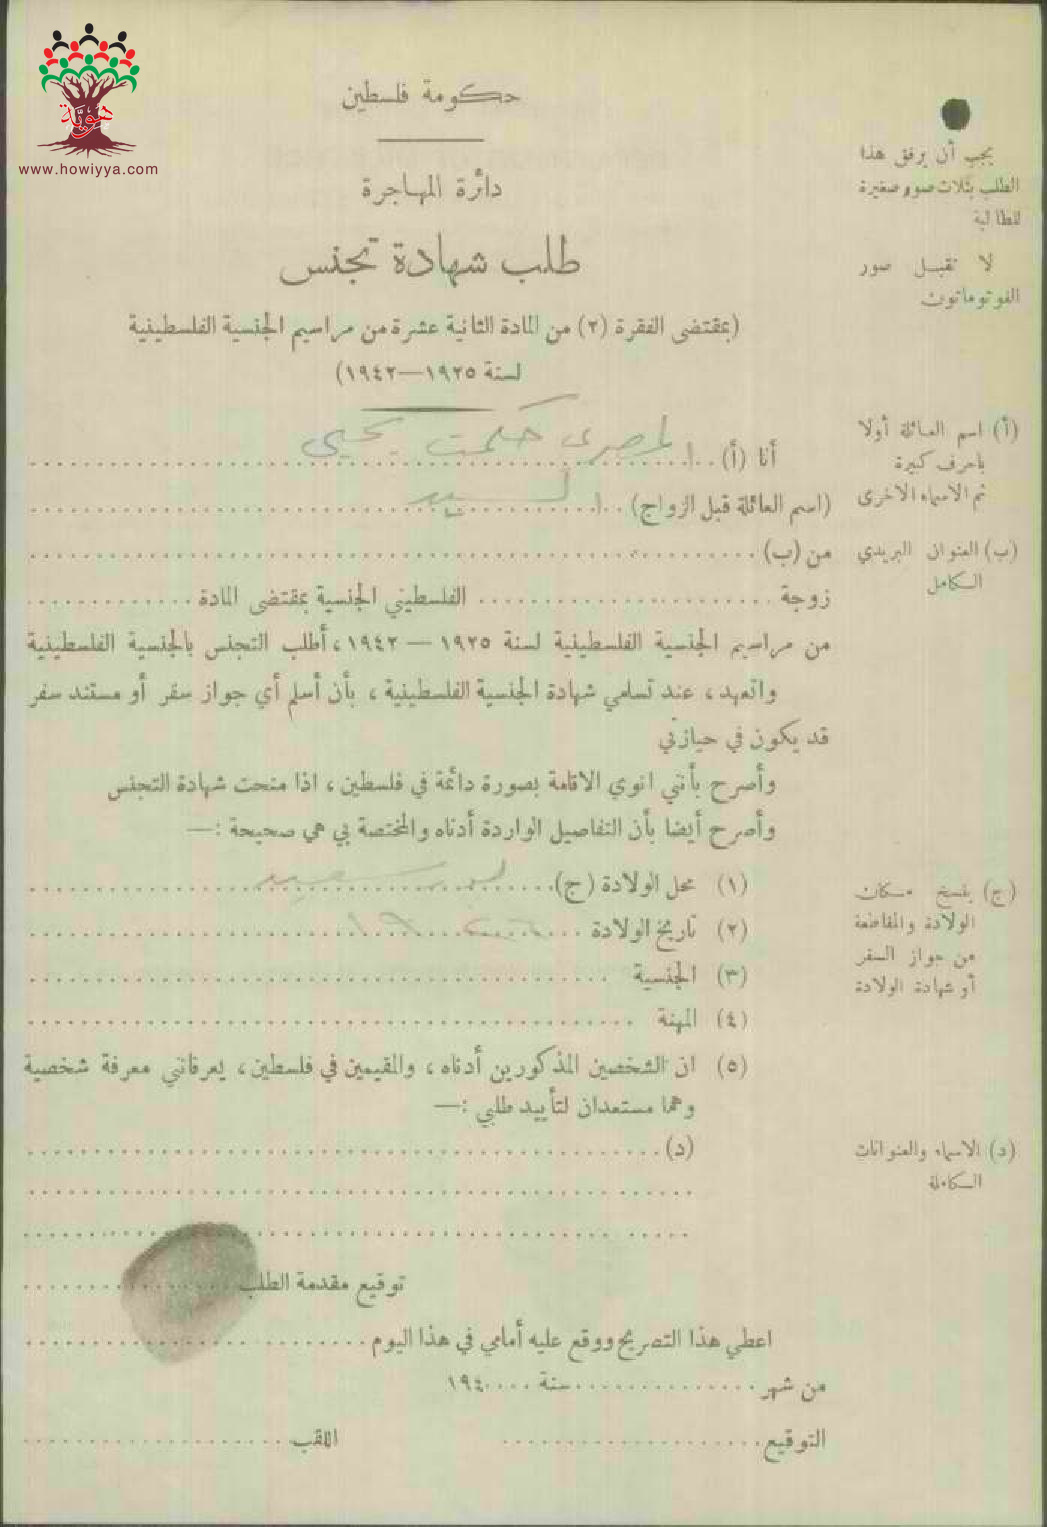 هوية
www.howiyya.com
حكومة فلسطين
دائرة المهاجرة
طلب شهادة تجنس
(بمقتضى الفقرة (٢) من المادة الثانية عشرة من مراسيم الجنسية الفلسطينية
لسنة ١٩٢٥—١٩٤٢)
يجب أن يرفق هذا
الطلب بثلاث صور صغيرة
للطالبة
لا تقبل صور
الفوتوماتون
أنا (أ) المصري حكمت يحيى
(أ) اسم العائلة أولا
باحرف كبيرة
ثم الاسماء الاخرى
(اسم العائلة قبل الزواج) السيد
من (ب)
(ب) العنوان البريدي
الكامل
زوجة الفلسطيني الجنسية بمقتضى المادة
من مراسيم الجنسية الفلسطينية لسنة ١٩٢٥ — ١٩٤٢، أطلب التجنس بالجنسية الفلسطينية
واتعهد، عند تسلمي شهادة الجنسية الفلسطينية، بأن أسلم أي جواز سفر أو مستند سفر
قد يكون في حيازتي
وأصرح بأنني انوي الاقامة بصورة دائمة في فلسطين، اذا منحت شهادة التجنس
وأصرح أيضا بأن التفاصيل الواردة أدناه والمختصة بي هي صحيحة :—
(١) محل الولادة (ج) بور سعيد
(ج) ينسخ مكان
الولادة والمقاطعة
من جواز السفر
أو شهادة الولادة
(٢) تاريخ الولادة
(٣) الجنسية
(٤) المهنة
(٥) ان الشخصين المذكورين أدناه، والمقيمين في فلسطين، يعرفانني معرفة شخصية
وهما مستعدان لتأييد طلبي :—
(د)
(د) الاسماء والعنوانات
الكاملة
توقيع مقدمة الطلب
اعطي هذا التصريح ووقع عليه أمامي في هذا اليوم
من شهر سنة ١٩٤٠
التوقيع اللقب